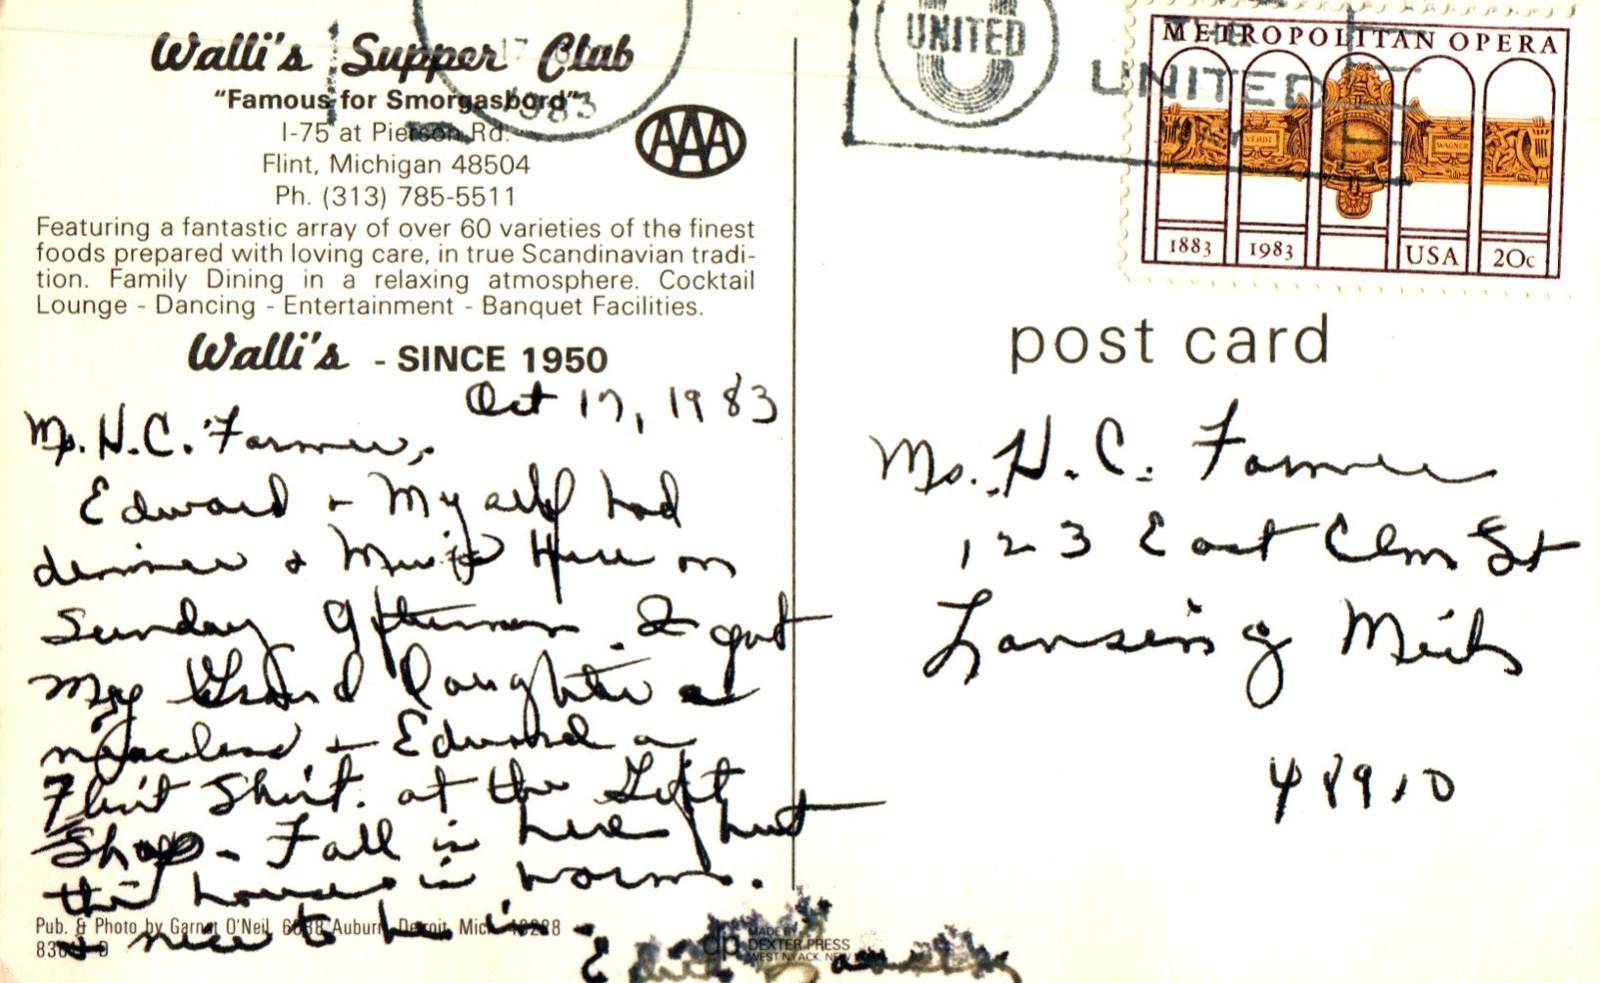 Walli's Supper Club
"Famous for Smorgasbord"
I-75 at Pierson Rd.
Flint, Michigan 48504
Ph. (313) 785-5511
AAA
Featuring a fantastic array of over 60 varieties of the finest
foods prepared with loving care, in true Scandinavian tradi-
tion. Family Dining in a relaxing atmosphere. Cocktail
Lounge - Dancing - Entertainment - Banquet Facilities.
Walli's - SINCE 1950
Oct 17, 1983
Ms. H.C. Farmer,
Edward & Myself had
dinner & Music Here on
Sunday Afternoon. I got
my Grand Daughter a
necklace & Edward a
Flint Shirt. at the Gift
Shop - Fall is here but
the house is warm.
& nice to be in
Pub. & Photo by Garnet O'Neil, Auburn, Detroit, Mich. 48228
MADE BY
dp DEXTER PRESS
WEST NYACK, NEW
17
1983
UNITED
UNITED
METROPOLITAN OPERA
VERDI
WAGNER
1883 1983 USA 20c
post card
Ms. H. C. Farmer
123 East Elm St
Lansing Mich
48910